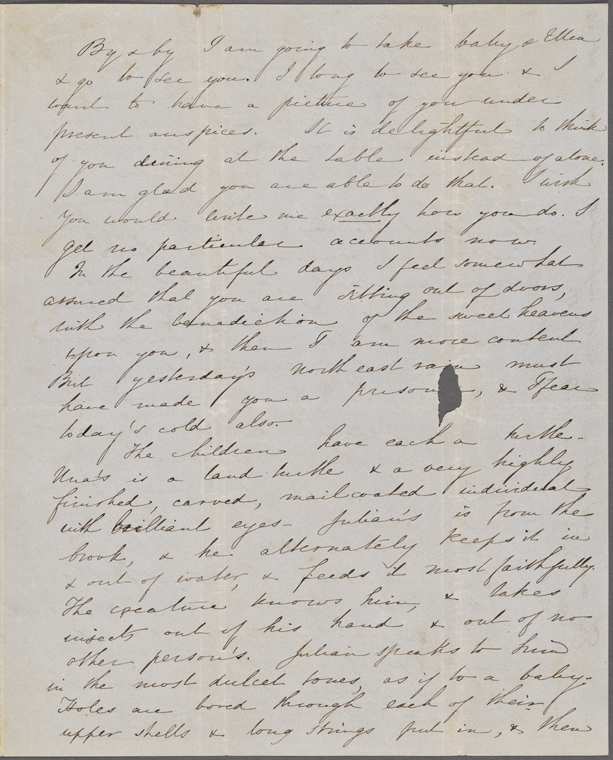 By & by I am going to take baby & Ellen
& go to see you. I long to see you & I
want to have a picture of you under
present auspices. It is delightful to think
of you dining at the table instead of alone.
I am glad you are able to do that. I wish
you would write me exactly how you do. I
get no particular accounts now.
In the beautiful days I feel somewhat
assured that you are sitting out of doors,
with the benediction of the sweet heavens
upon you, & then I am more content
But yesterday's north east rain must
have made you a prisoner, & I fear
today's cold also.
The children have each a turtle.
Una's is a land turtle & a very highly
finished, carved, mailcoated individual
with brilliant eyes - Julian's is from the
brook, & he alternately keeps it in
& out of water, & feeds it most faithfully.
The creature knows him, & takes
insects out of his hand & out of no
other person's. Julian speaks to him
in the most dulcet tones, as if to a baby.
Holes are bored through each of their
upper shells & long strings put in, & then